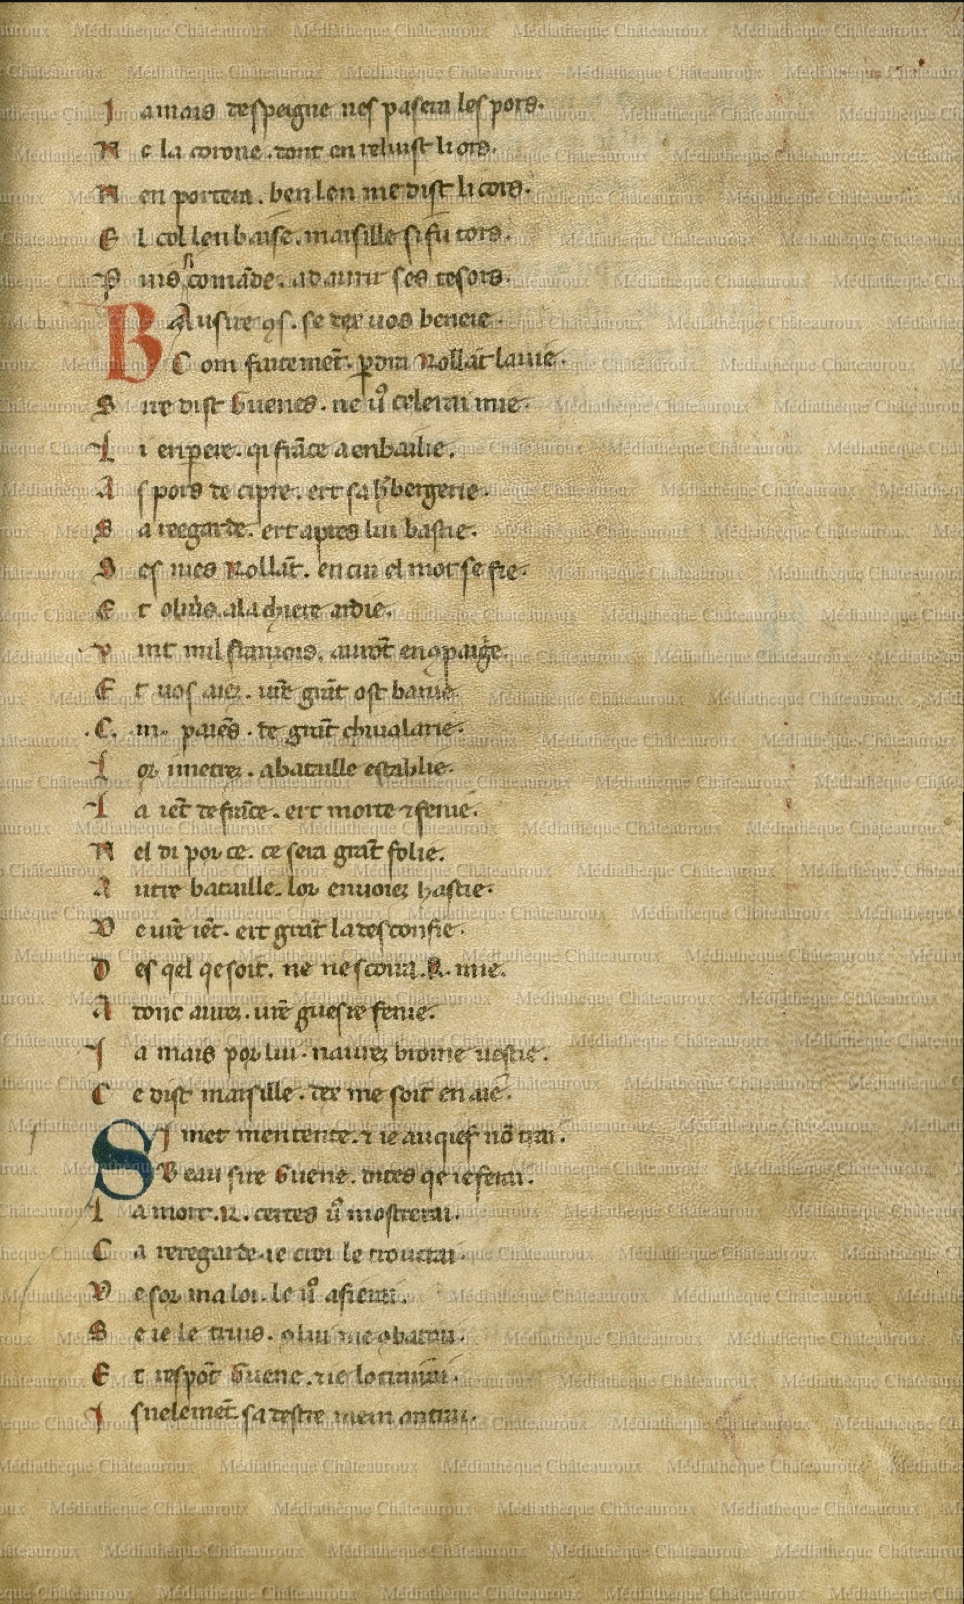 J amais despeigne nes pasera les pors.
N e la corone. dont en reluist li ors.
N en portera. ben len me dist li cors.
E l col len baise. marsille si fu tors.
P uis comãde. ad aurir ses tesors.
B Au sire q̃s. se dex uos beneie.
C om faitemẽt. ꝑdra Rollãt la uie.
S ire dist Guenes. ne uꝰ celerai mie.
L i enꝑere. qi frãce a en bailie.
A s pors de cipre. ert sa h̃bergerie.
S a reegarde. ert apres lui bastie.
S es nies Rollãt. en cui el mot se fie.
E t oliũs. a la chiere ardie.
V int mil francois. aurõt en ꝯpaigẽ.
E t uos aiez. ur̃e grãt ost banie.
.C. m. paiẽs. de grãt chiualarie.
L or i metrez. a bataille establie.
L a iẽt de frãce. ert morte ⁊ fenie.
N el di por ce. ce sera grãt folie.
A utre bataille. lor enuoiez hastie.
D e ur̃e iẽt. ert grãt la desconfie.
D es qel qe soit. ne ne scoura .R. mie.
A donc aurez. ur̃e guesre fenie.
J a mais por lui. naurez broine uestie.
C e dist marsille. dex me soit en aie.
S J met mentente. ⁊ ie auqief nõ trai.
B eau sire Guene. dites qe ie ferai.
L a mort .R. certes uꝰ mosterai.
C a reregarde. ie croi le trouerai
D e sor ma loi. le uꝰ afierai.
S e ie le truis. ꝯ lui me ꝯbatrai.
E t respõt Guene. ⁊ ie lotroierai.
J snelemẽt sa teste men